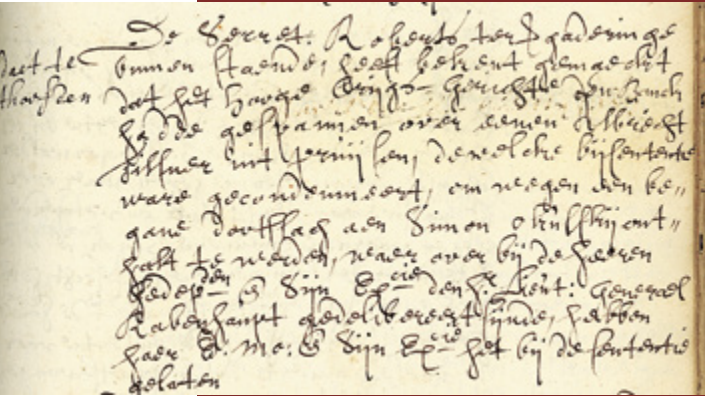 De Secret. Roberts ter vergaderinge
binnen staende, heeft bekent gemaeckt
dat het hooge Crijgs-Gerichte den Banck
hadde gespannen over eenen Albrecht
uit Pruijssen, dewelcke bij sententie
ware gecondemneert, om wegen den be„
gane dootslach aen Simon ont„
halst te werden, waer over bij de heeren
Gedep.den & Sijn Ex.cie den Hr. Leut: Generael
Rabenhaupt gedelibereert sijnde, hebben
haer E: Mo: & Sijn Ex.cie het bij de sententie
gelaten